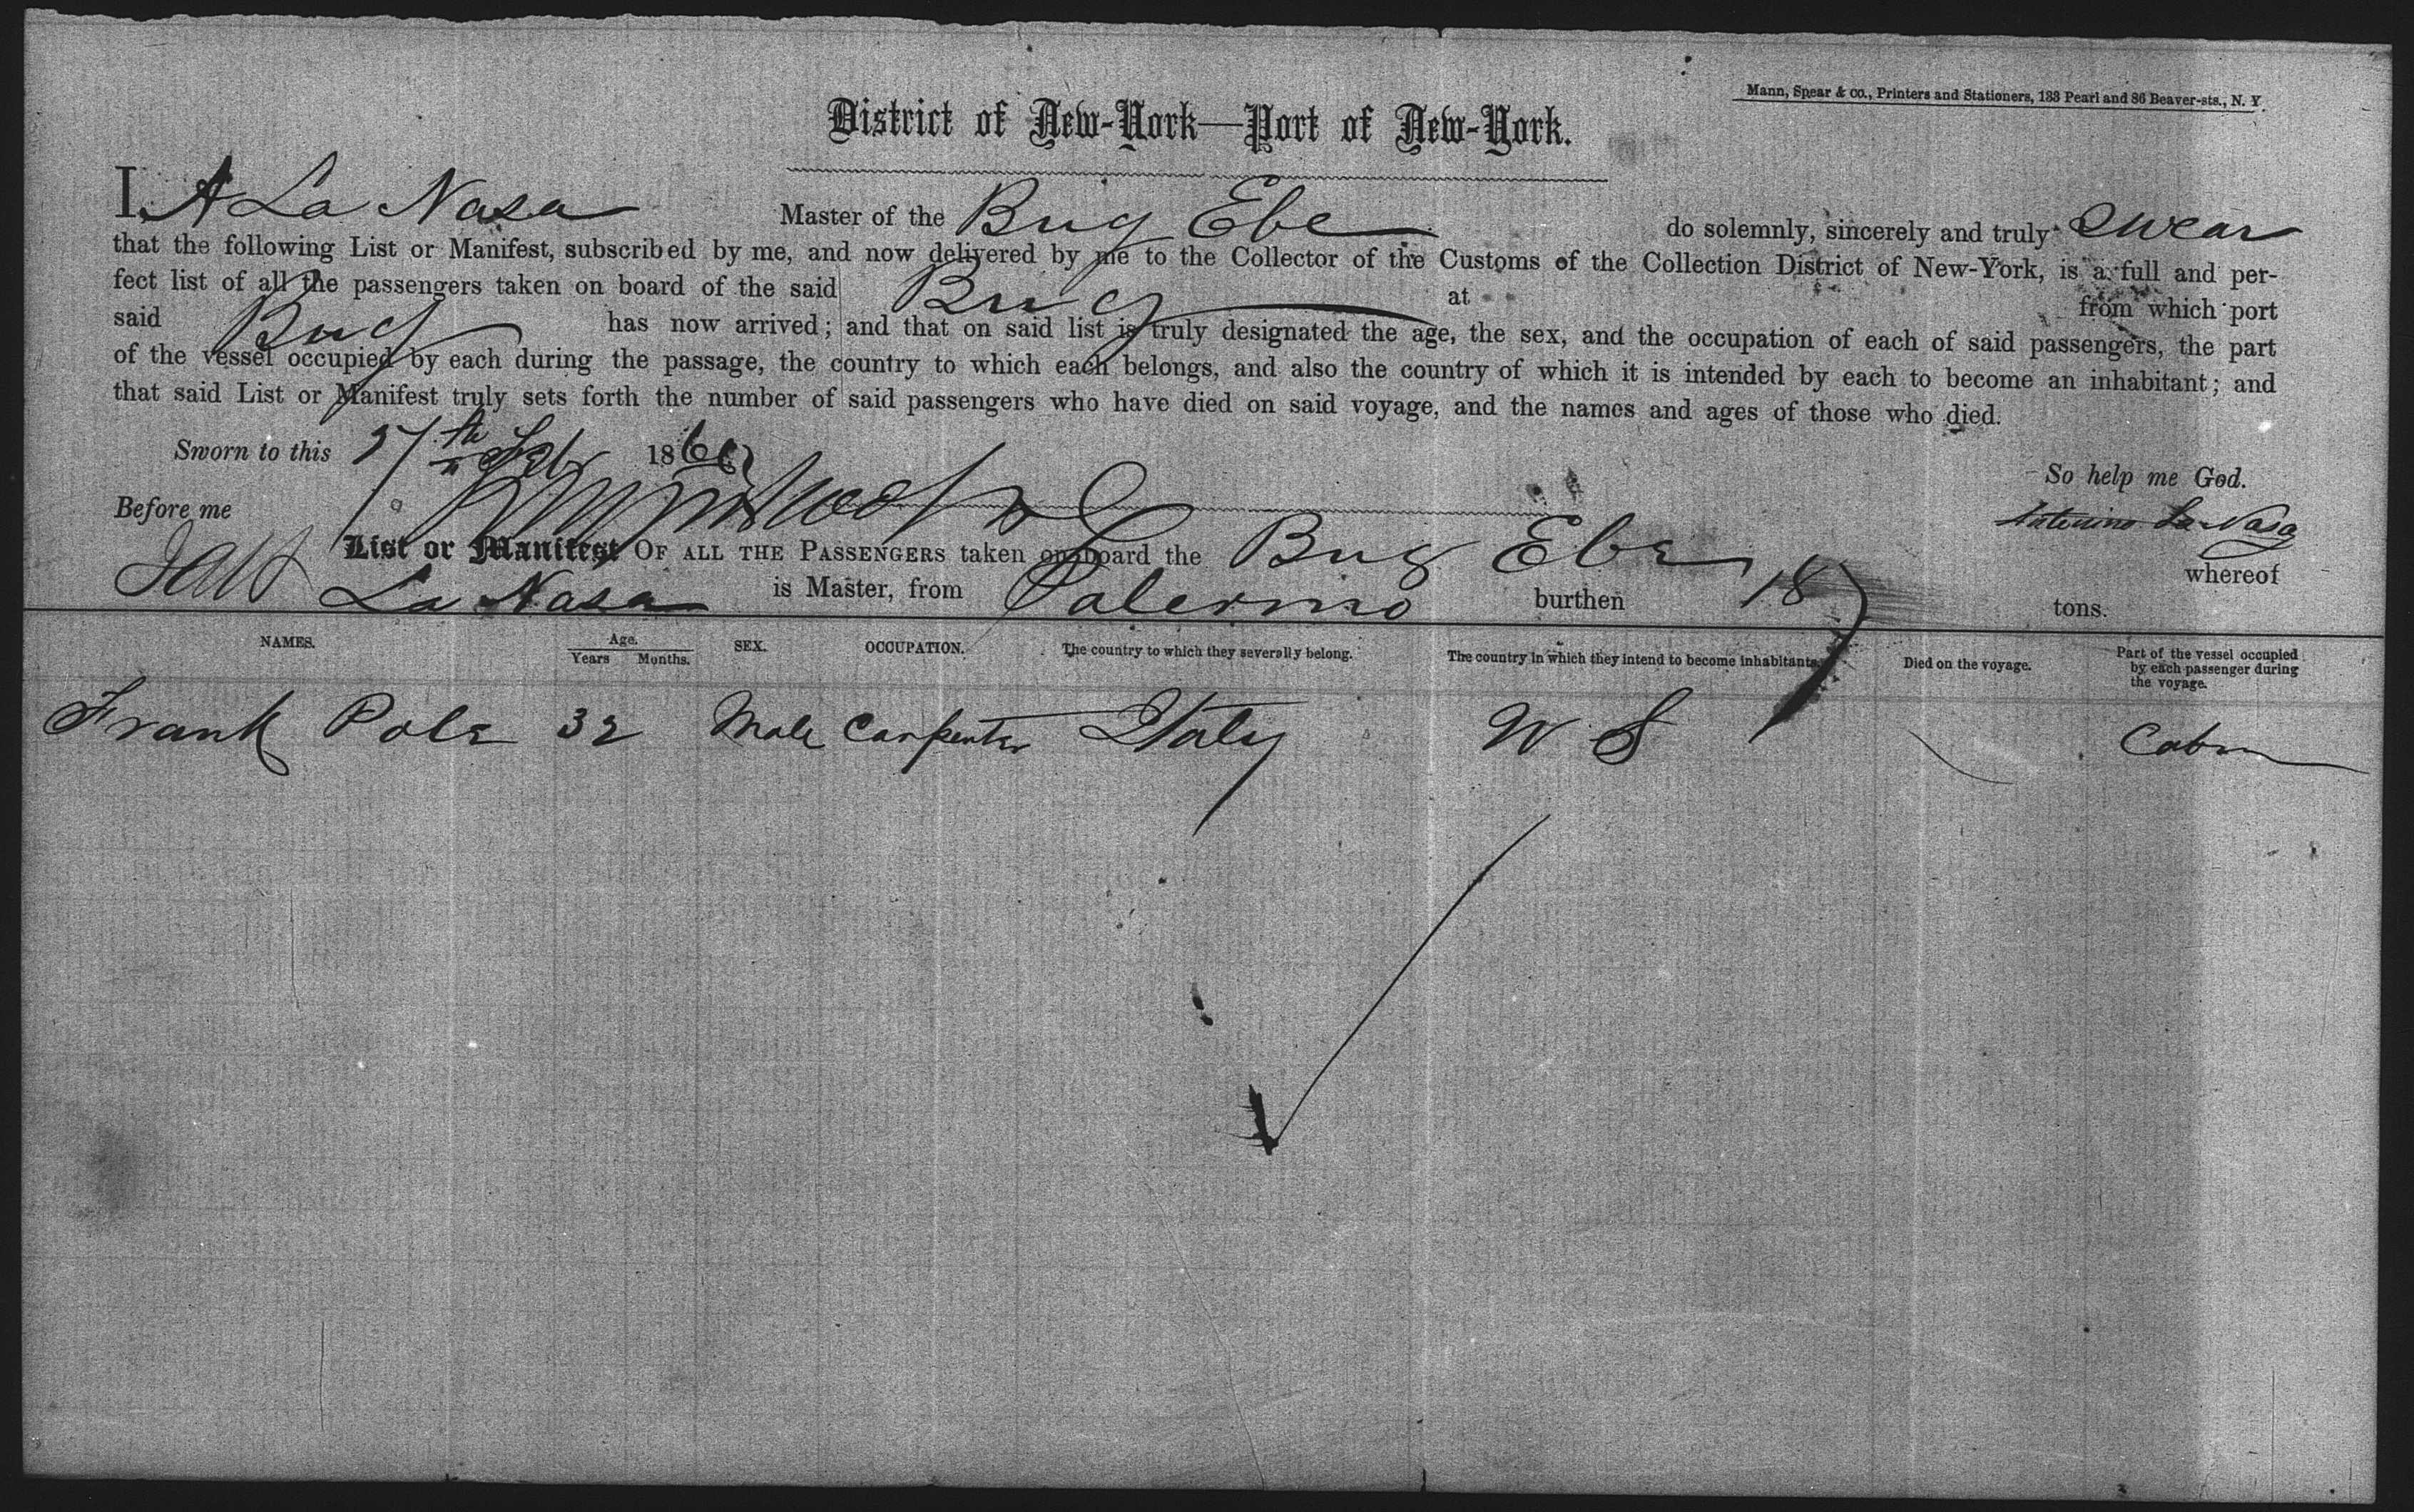 Mann, Spear & co., Printers and Stationers, 133 Pearl and 86 Beaver-sts., N. Y.
District of New-York—Port of New-York.
I, A La Nasa Master of the Brig Ebe do solemnly, sincerely and truly swear
that the following List or Manifest, subscribed by me, and now delivered by me to the Collector of the Customs of the Collection District of New-York, is a full and per-
fect list of all the passengers taken on board of the said Brig at from which port
said Brig has now arrived; and that on said list is truly designated the age, the sex, and the occupation of each of said passengers, the part
of the vessel occupied by each during the passage, the country to which each belongs, and also the country of which it is intended by each to become an inhabitant; and
that said List or Manifest truly sets forth the number of said passengers who have died on said voyage, and the names and ages of those who died.
Sworn to this th Feb 186 So help me God.
Before me Antonino La Nasa
List or Manifest OF ALL THE PASSENGERS taken on board the Brig Ebe whereof
La Nasa is Master, from Palermo burthen 187 tons.
NAMES. Age. Years Months. SEX. OCCUPATION. The country to which they severally belong. The country in which they intend to become inhabitants. Died on the voyage. Part of the vessel occupied by each passenger during the voyage.
Frank Pole 32 Male Carpenter Italy U S Cabin